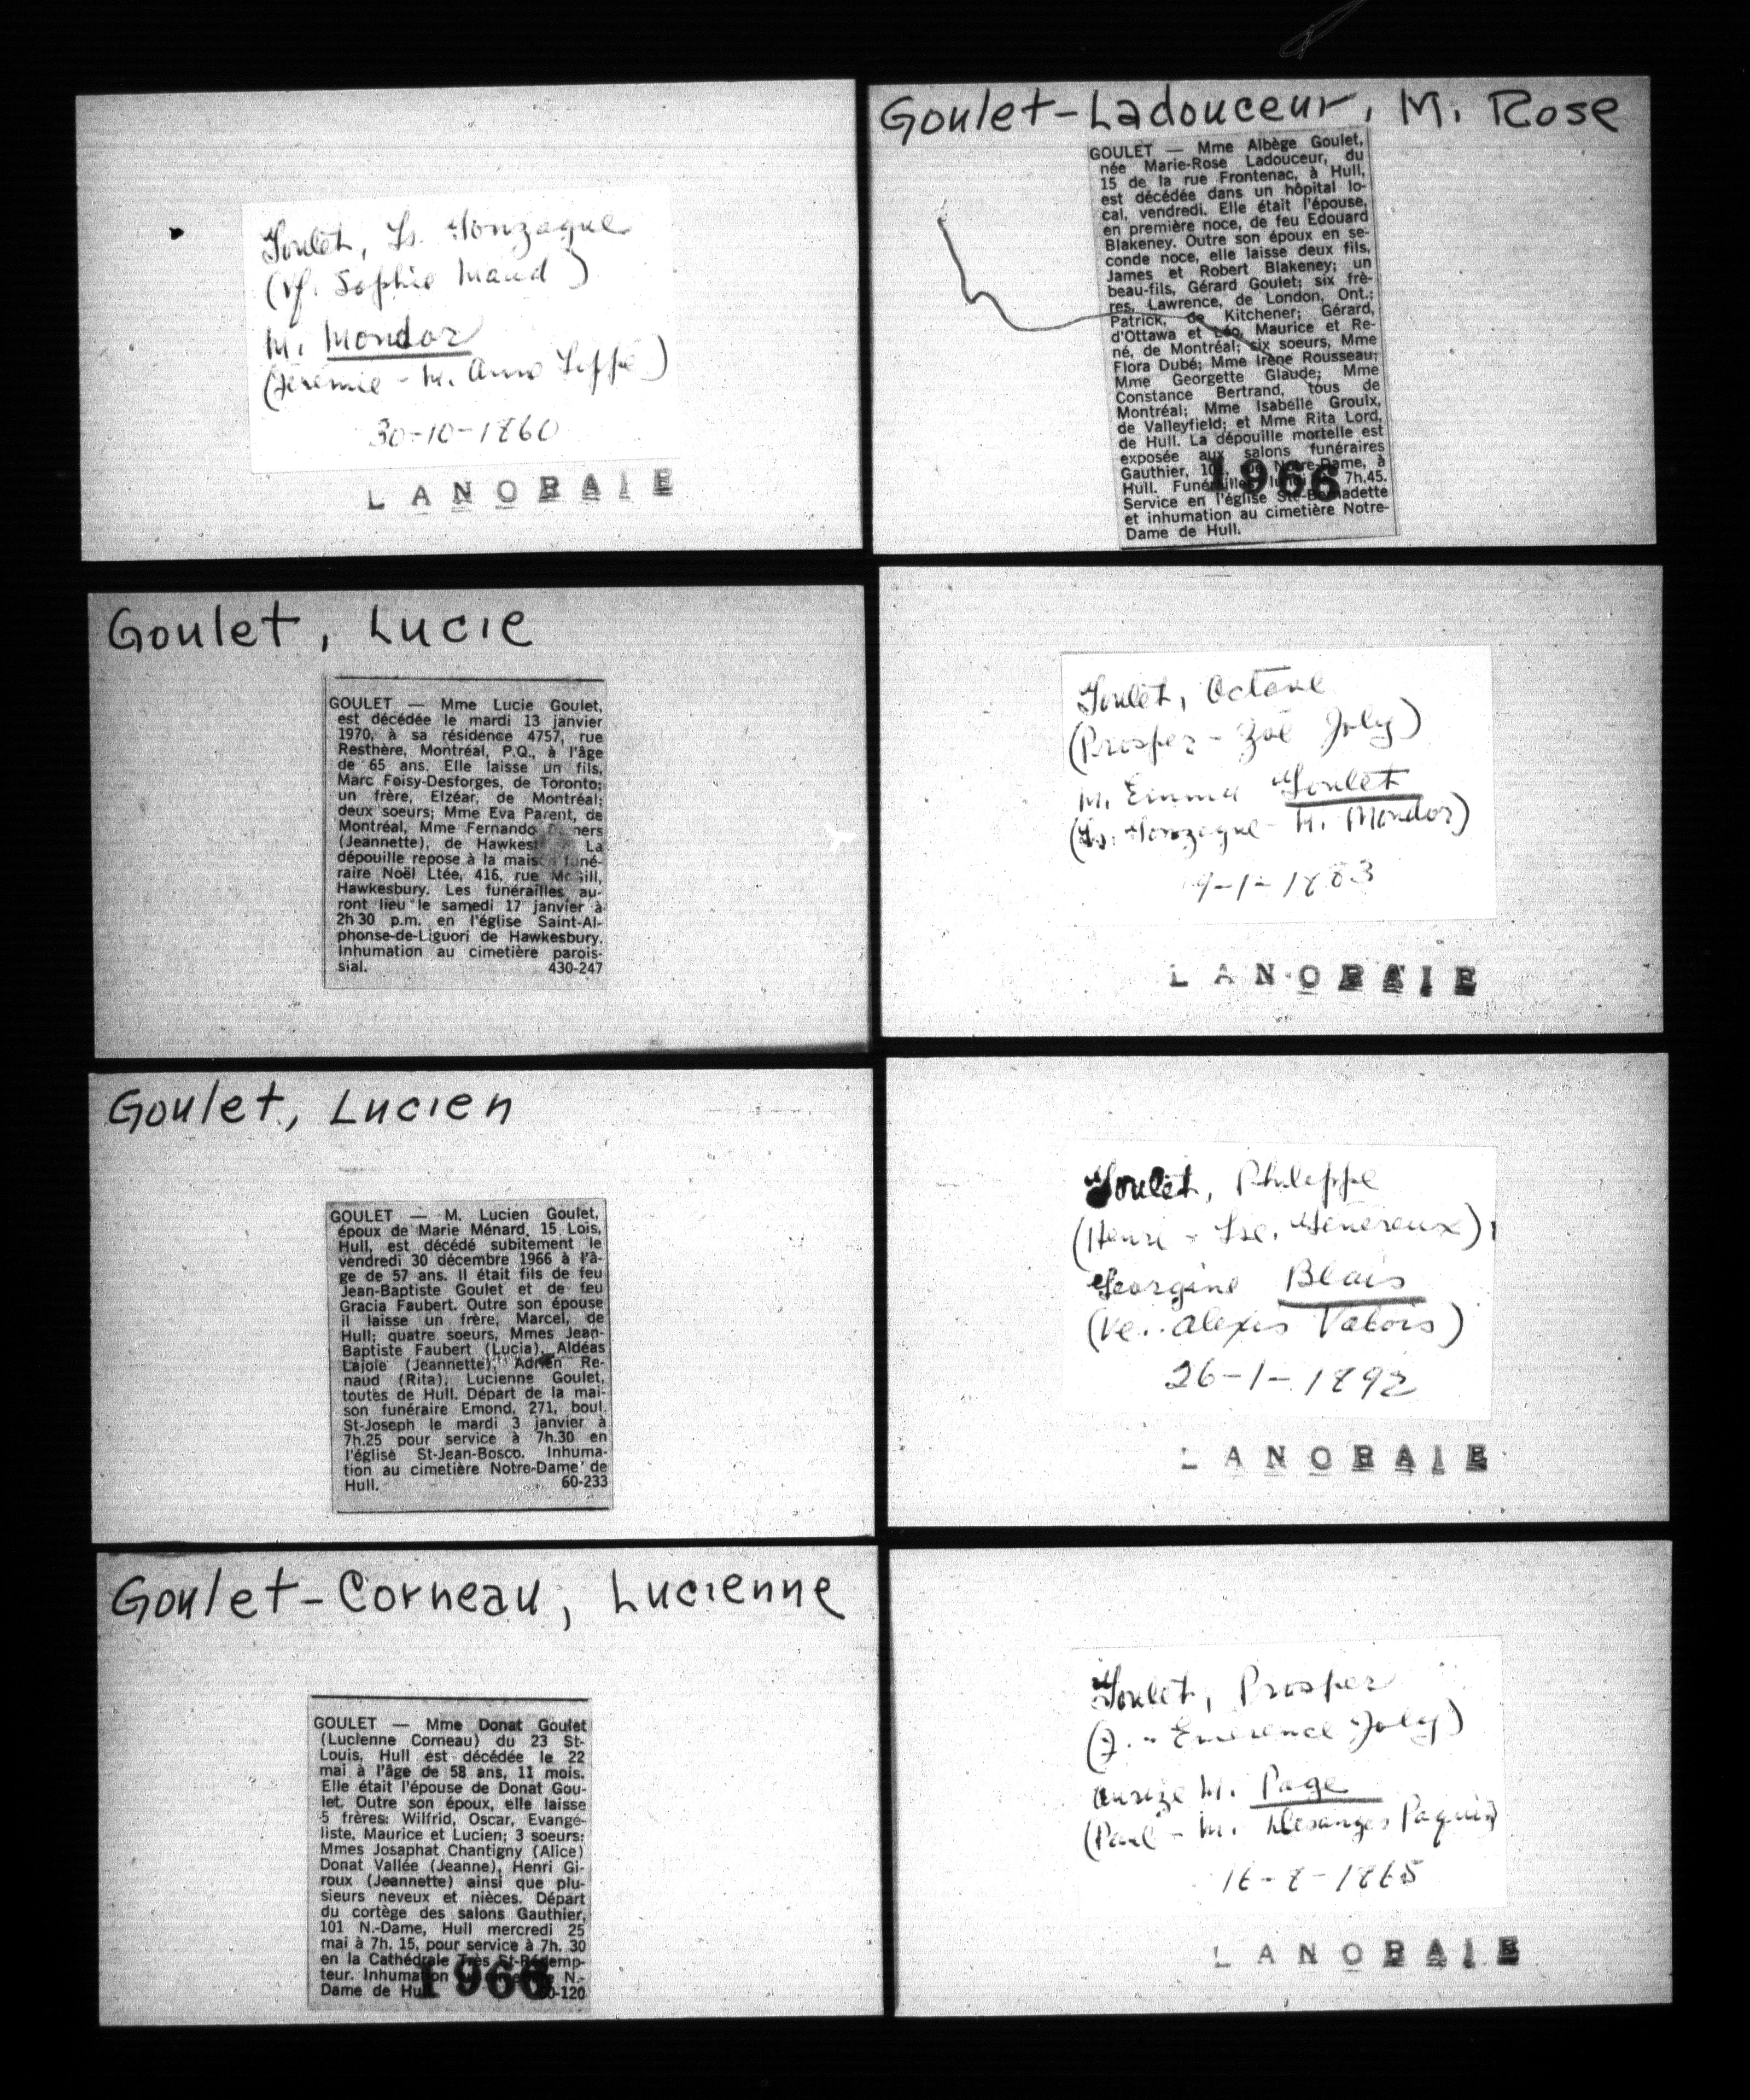 Goulet, Ls. Gonzague
(Vf. Sophie Maud)
M. Mondor
(Jérémie - M. Anne Piffé)
30-10-1860
LANORAIE
Goulet, Lucie
GOULET — Mme Lucie Goulet,
est décédée le mardi 13 janvier
1970, à sa résidence 4757, rue
Resthère, Montréal, P.Q., à l'âge
de 65 ans. Elle laisse un fils,
Marc Foisy-Desforges, de Toronto;
un frère, Elzéar, de Montréal;
deux soeurs; Mme Eva Parent, de
Montréal, Mme Fernando
(Jeannette), de La
dépouille repose à la maison funé-
raire Noël Ltée, 416, rue McGill,
Hawkesbury. Les funérailles au-
ront lieu le samedi 17 janvier à
2h 30 p.m. en l'église Saint-Al-
phonse-de-Liguori de Hawkesbury.
Inhumation au cimetière parois-
sial. 430-247
Goulet, Lucien
GOULET — M. Lucien Goulet,
époux de Marie Ménard, 15 Lois,
Hull, est décédé subitement le
vendredi 30 décembre 1966 à l'â-
ge de 57 ans. Il était fils de feu
Jean-Baptiste Goulet et de feu
Gracia Faubert. Outre son épouse
il laisse un frère, Marcel, de
Hull; quatre soeurs, Mmes Jean-
Baptiste Faubert (Lucia), Aldéas
Lajoie (Jeannette), Adrien Re-
naud (Rita), Lucienne Goulet,
toutes de Hull. Départ de la mai-
son funéraire Emond, 271, boul.
St-Joseph le mardi 3 janvier à
7h.25 pour service à 7h.30 en
l'église St-Jean-Bosco. Inhuma-
tion au cimetière Notre-Dame de
Hull. 60-233
Goulet-Corneau, Lucienne
GOULET — Mme Donat Goulet
(Lucienne Corneau) du 23 St-
Louis, Hull est décédée le 22
mai à l'âge de 58 ans, 11 mois.
Elle était l'épouse de Donat Gou-
let. Outre son époux, elle laisse
5 frères: Wilfrid, Oscar, Evangé-
liste, Maurice et Lucien; 3 soeurs:
Mmes Josaphat Chantigny (Alice)
Donat Vallée (Jeanne), Henri Gi-
roux (Jeannette) ainsi que plu-
sieurs neveux et nièces. Départ
du cortège des salons Gauthier,
101 N.-Dame, Hull mercredi 25
mai à 7h. 15, pour service à 7h. 30
en la Cathédrale Très St-Rédemp-
teur. Inhumation N.-
Dame de Hull -120
1966
Goulet-Ladouceur, M. Rose
GOULET — Mme Albège Goulet,
née Marie-Rose Ladouceur, du
15 de la rue Frontenac, à Hull,
est décédée dans un hôpital lo-
cal, vendredi. Elle était l'épouse,
en première noce, de feu Edouard
Blakeney. Outre son époux en se-
conde noce, elle laisse deux fils,
James et Robert Blakeney; un
beau-fils, Gérard Goulet; six frè-
res, Lawrence, de London, Ont.;
Patrick, de Kitchener; Gérard,
d'Ottawa et Léo, Maurice et Re-
né, de Montréal; six soeurs, Mme
Flora Dubé; Mme Irène Rousseau;
Mme Georgette Glaude; Mme
Constance Bertrand, tous de
Montréal; Mme Isabelle Groulx,
de Valleyfield; et Mme Rita Lord,
de Hull. La dépouille mortelle est
exposée aux salons funéraires
Gauthier, rue Notre-Dame, à
Hull. Funérailles 7h.45.
Service en l'église Ste-Bernadette
et inhumation au cimetière Notre-
Dame de Hull.
1966
Goulet, Octave
(Prosper - Zoé Joly)
M. Emma Goulet
(Ls. Gonzague - M. Mondor)
9-1-1883
LANORAIE
Goulet, Philippe
(Henri - Lse. Généreux)
Georgine Blais
(Ve. Alexis Valois)
26-1-1892
LANORAIE
Goulet, Prosper
(J. - Emerence Joly)
M. Page
(Paul - M. Desanges Paquin)
16-8-1865
LANORAIE